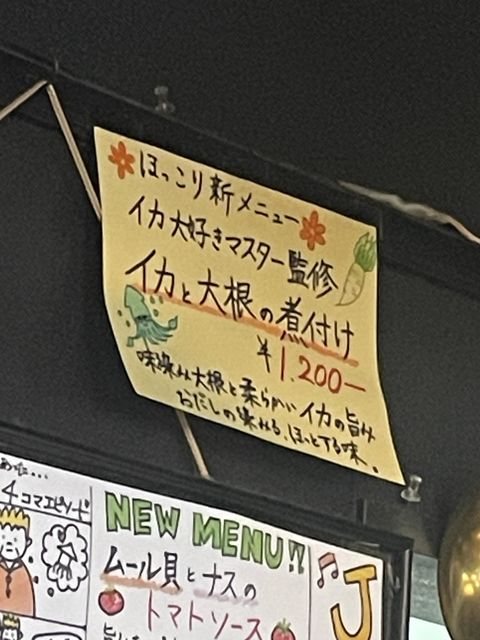 ほっこり新メニュー
イカ大好きマスター監修
イカと大根の煮付け
¥1.200-
味染み大根と柔らかいイカの旨み
おだしの染みる、ほっとする味。
4コマエピソード
NEW MENU!!
ムール貝とナスの
トマトソース
J